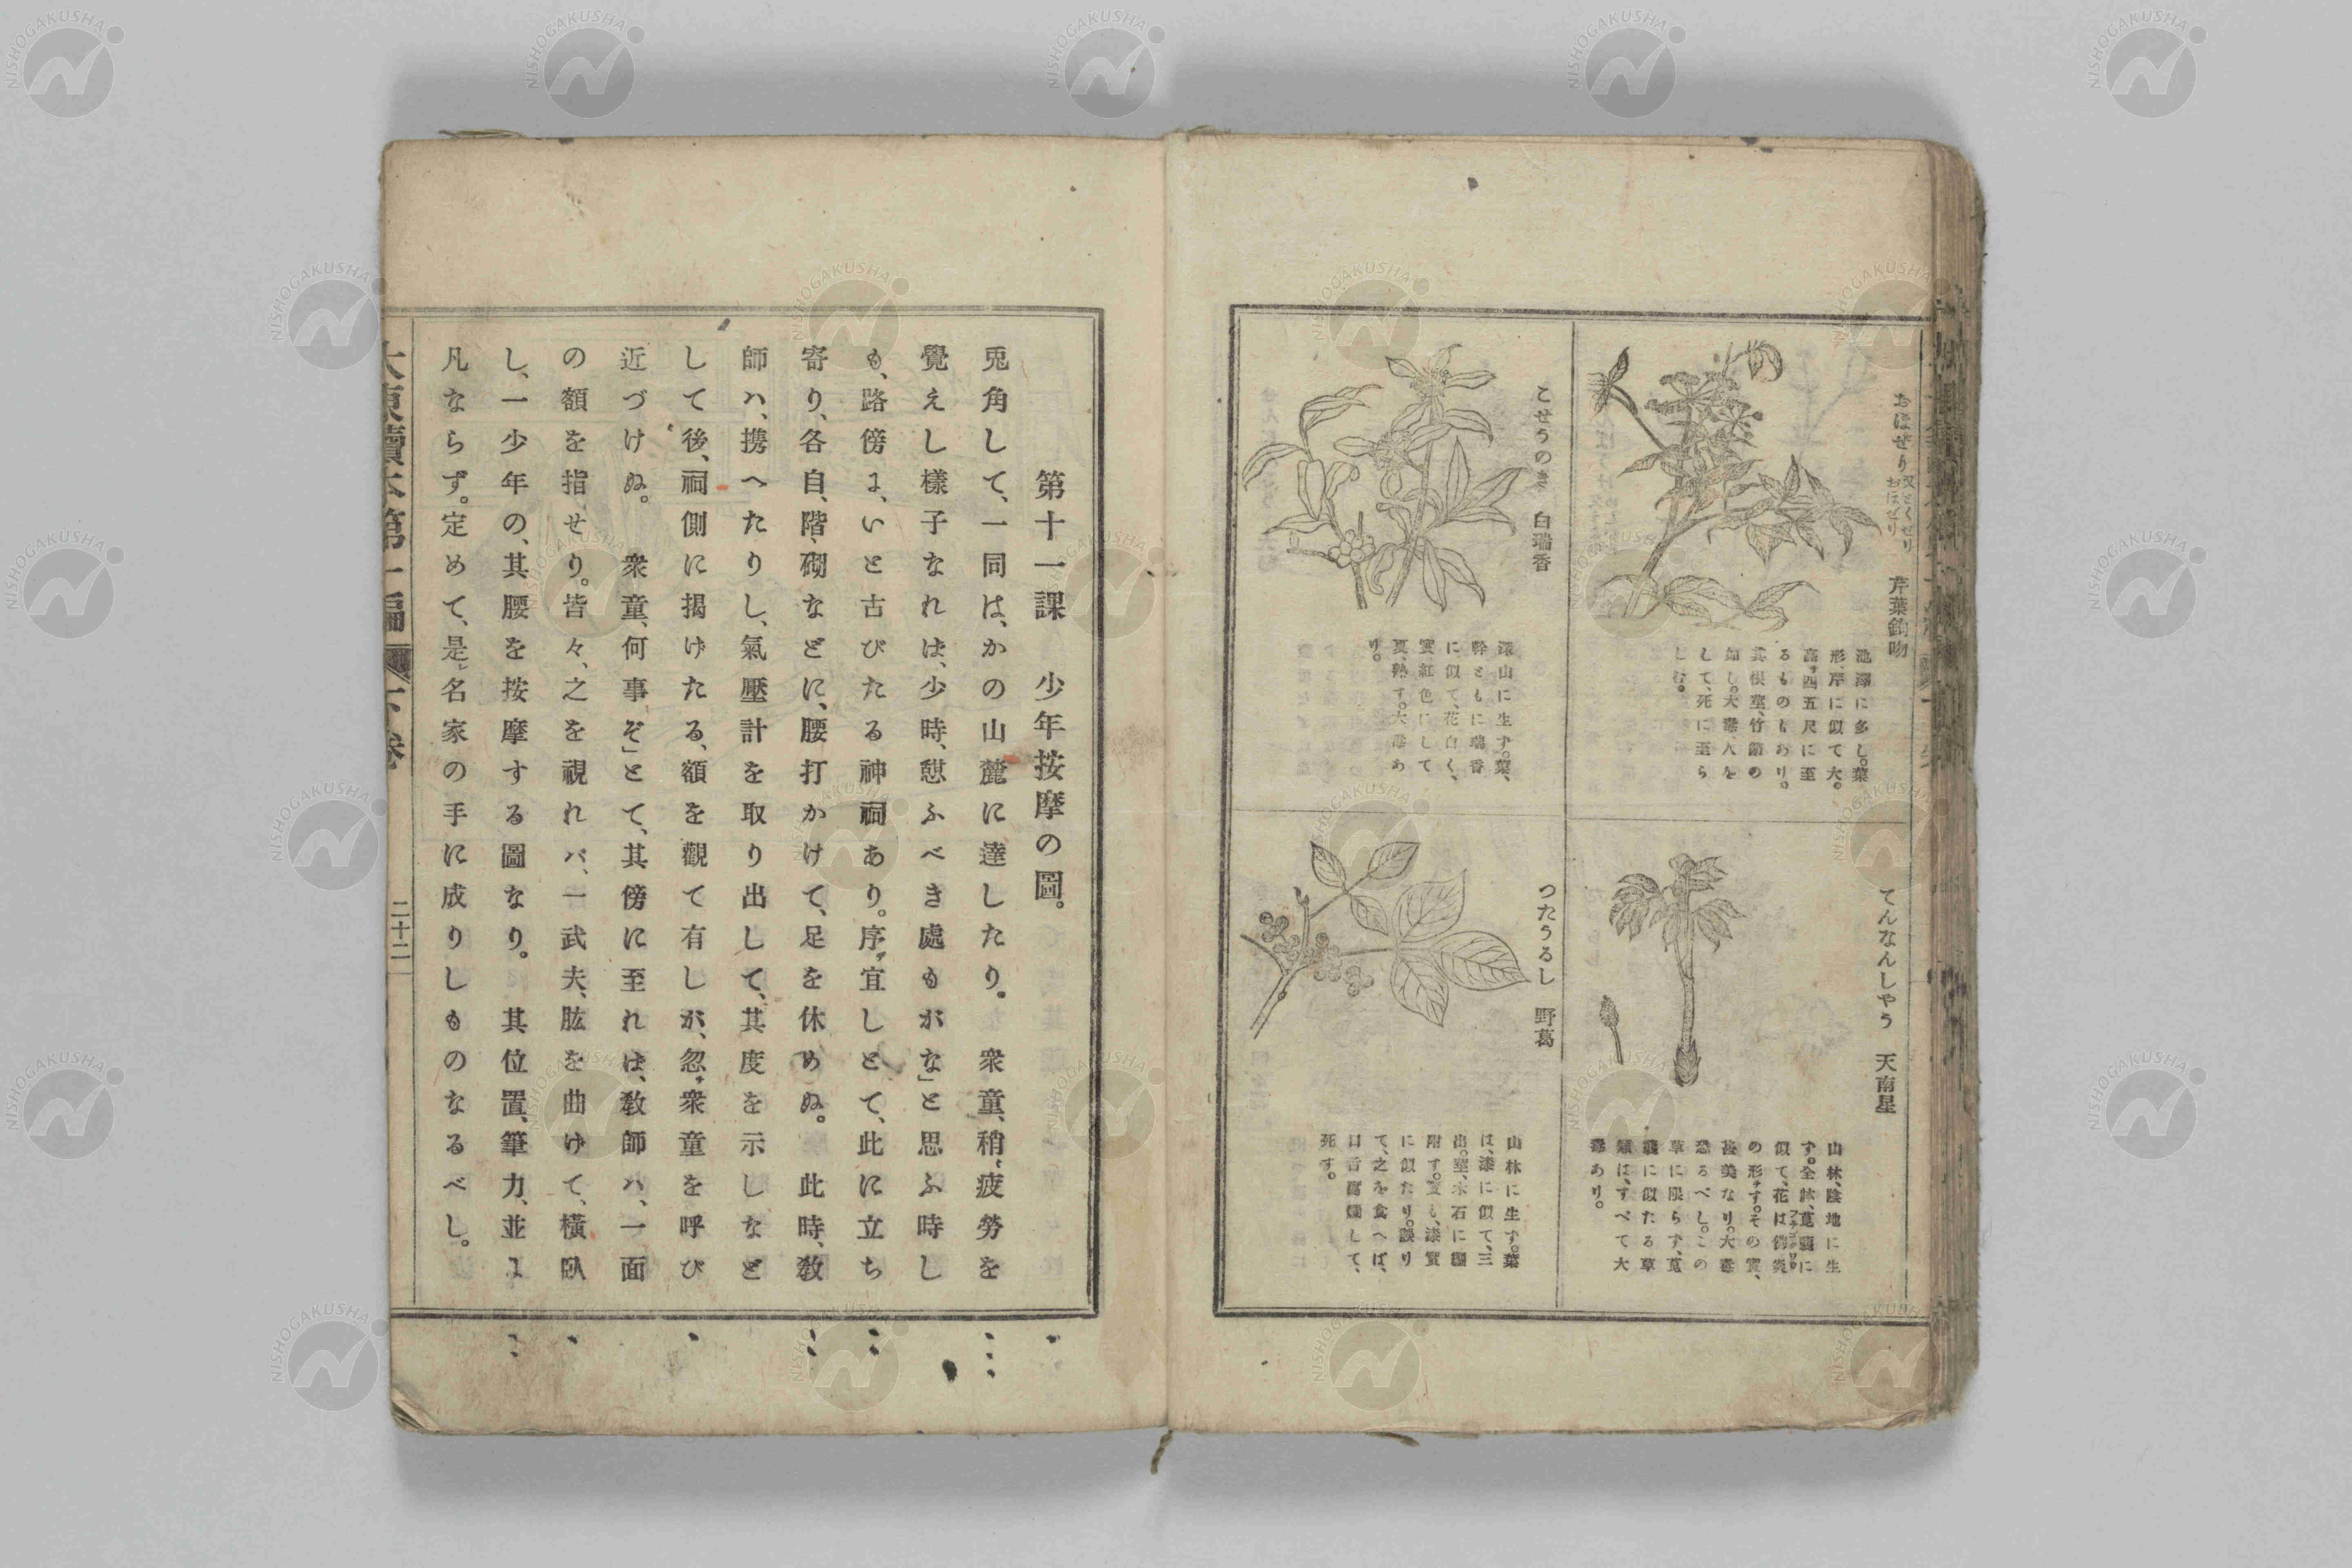 おほぜり 又どくぜり おほぜり 芹葉鉤吻
池澤に多し。葉
形、芹に似て大。
高サ四五尺に至
るものもあり。
其根莖、竹節の
如し。大毒、人を
して、死に至ら
しむ。
てんなんしやう 天南星
山林、陰地に生
す。全
似て、花は
の形ヲす。その實、
甚美なり。大毒
恐るべし。この
草に限らず、
に似たる草
類は、すべて大
毒あり。
こせうのき 白瑞香
深山に生す。葉、
幹ともに瑞香
に似て、花白く、
實、紅色にして
夏、熟す。大毒あ
り。
つたうるし 野葛
山林に生す。葉
は、漆に似て、三
出。莖、木石に纒
附す。實も、漆實
に似たり。誤り
て、之を食へば、
口舌腐爛して、
死す。
第十一課 少年按摩の圖。
兎角して、一同は、かの山麓に達したり。 衆童、稍〻疲勞を
覺えし樣子なれは、少時、憩ふべき處もがな」と思ふ時し
も、路傍よ、いと古びたる神祠あり。序ヲ宜しとて、此に立ち
寄り、各自、階、砌などに、腰打かけて、足を休めぬ。 此時、敎
師ハ、携へたりし、氣壓計を取り出して、其度を示しなど
して後、祠側に揭けたる、額を觀て有しが、忽チ衆童を呼び
近づけぬ。 衆童、何事ぞ」とて、其傍に至れは、敎師ハ、一面
の額を指せり。皆々、之を視れバ、一武夫、肱を曲けて、横臥
し、一少年の、其腰を按摩する圖なり。 其位置、筆力、並よ
凡ならず。定めて、是レ名家の手に成りしものなるべし。
大東讀本第二編 下卷 二十二
NISHOGAKUSHA